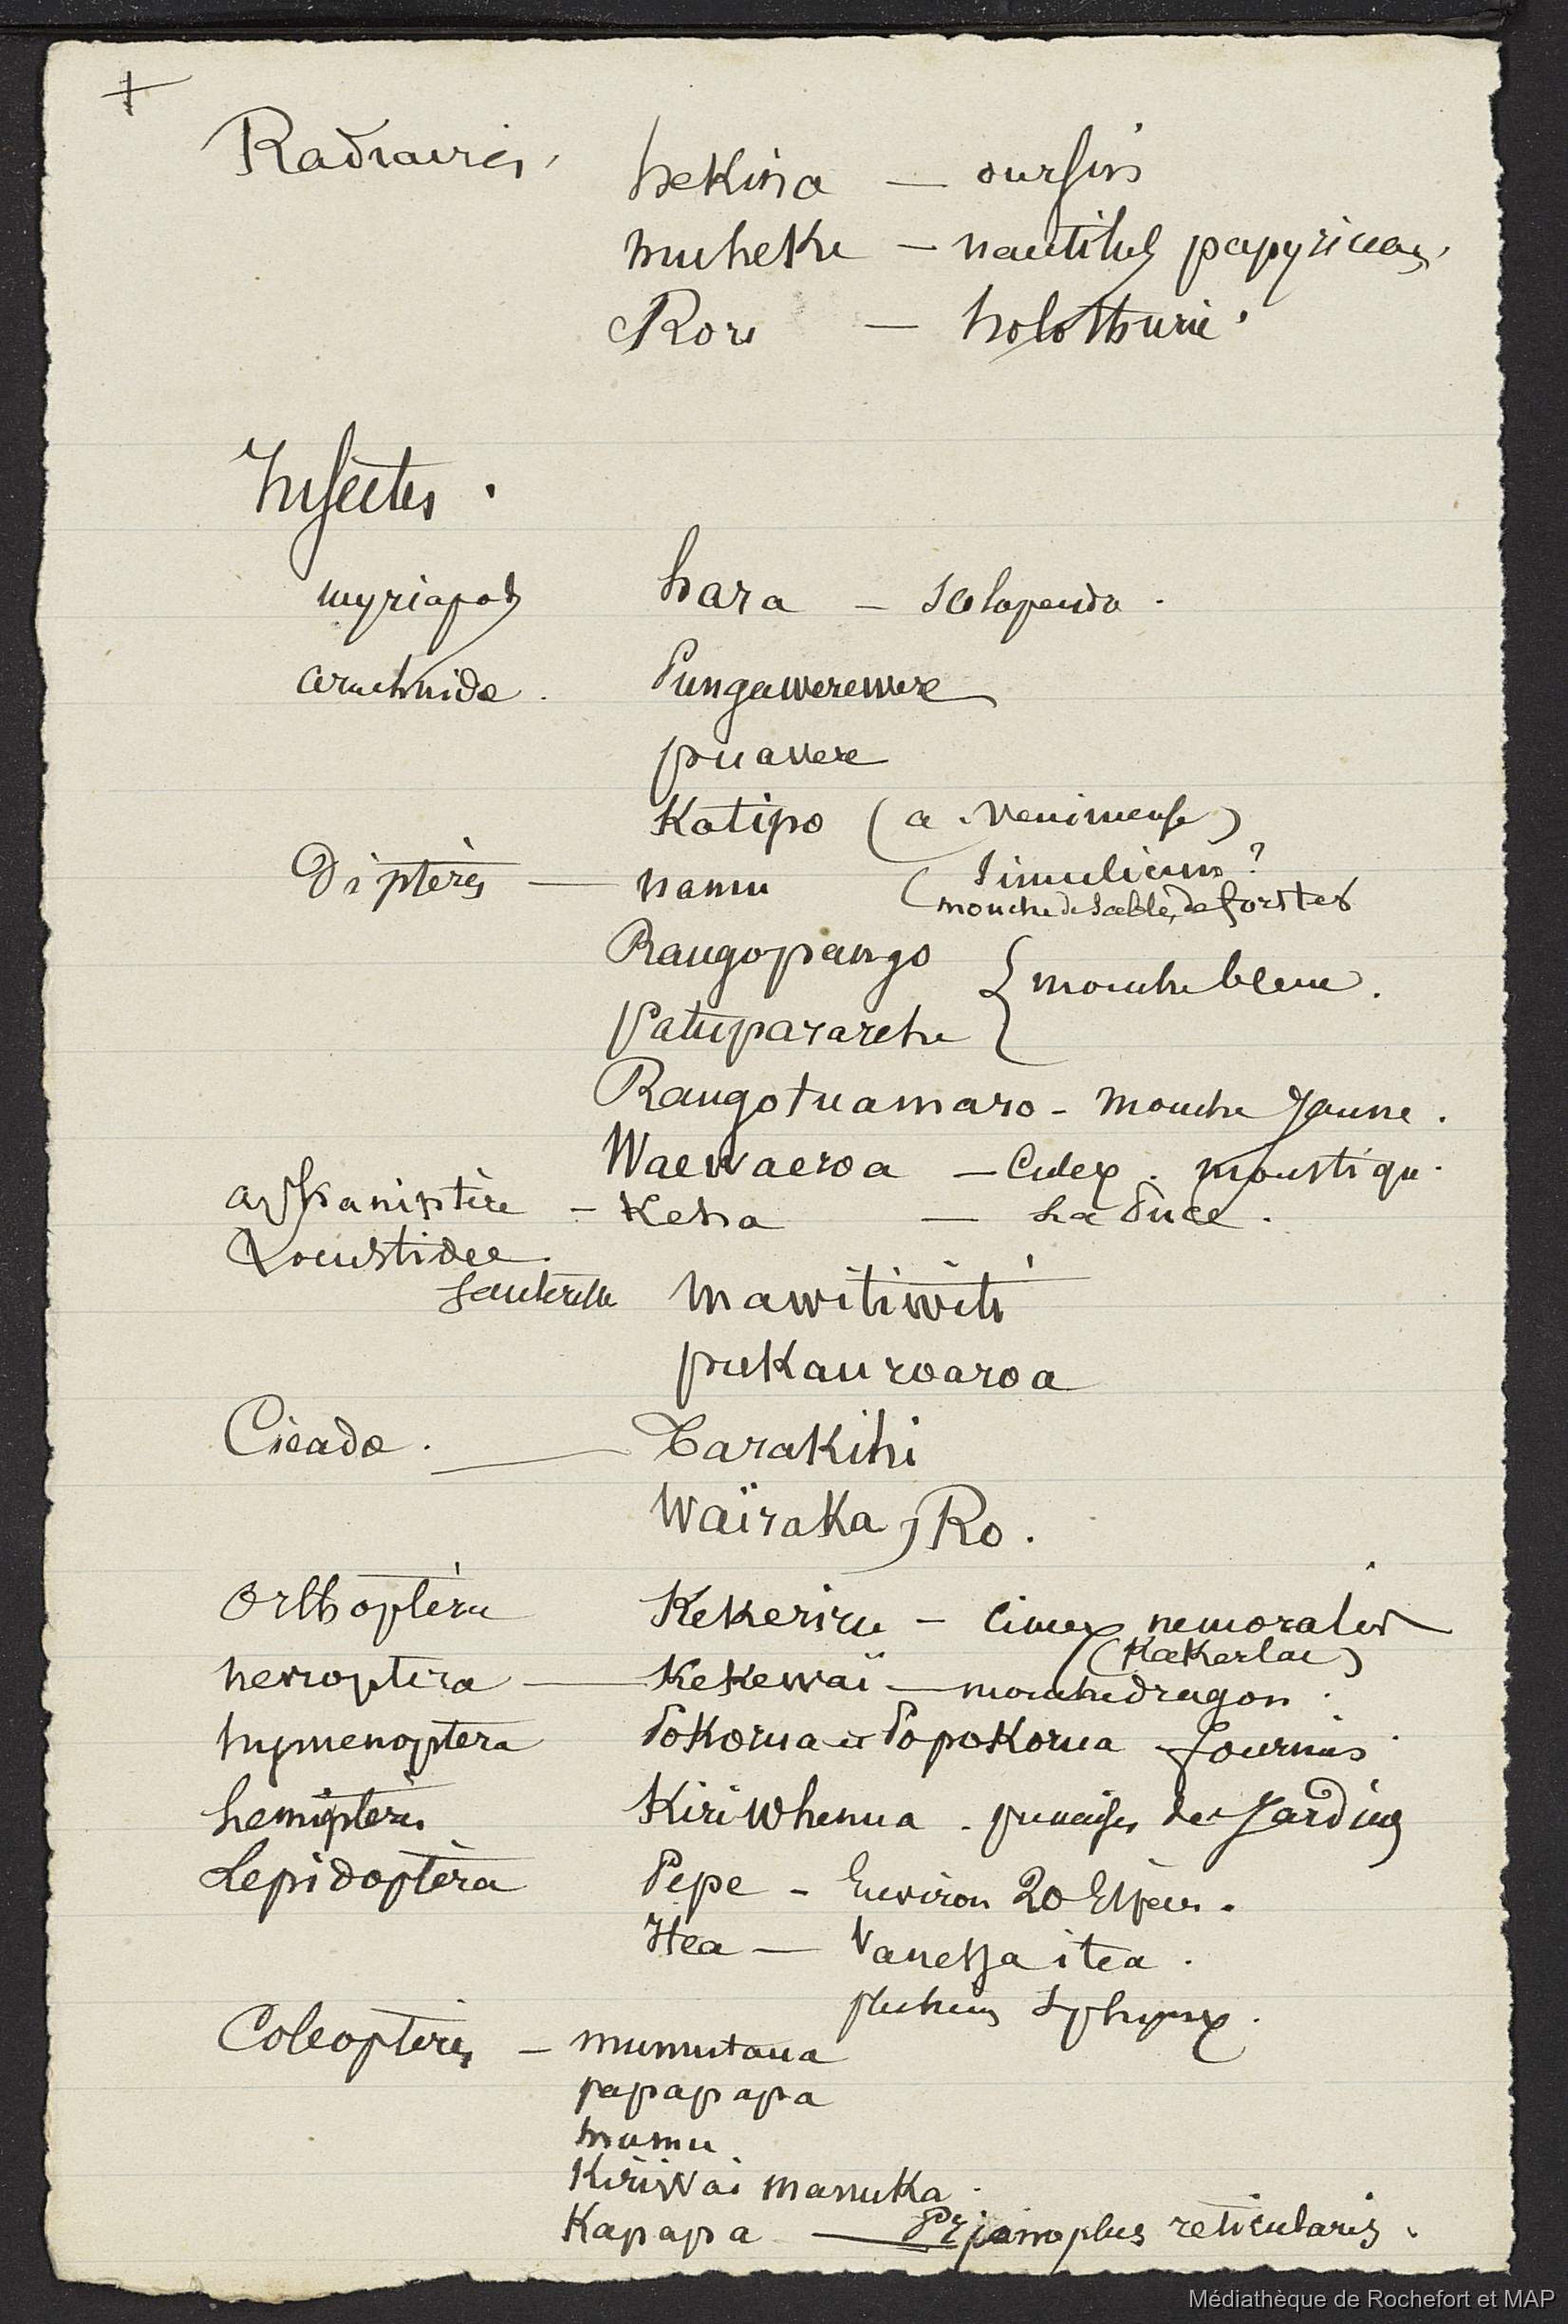 +
Radiaires.
hekina — oursin
muheke — nautilus papyriceus.
Rori — holothurie.
Insectes.
myriapods hara — scolopendra.
arachnidæ. Pungawerewere
puawere
Katipo (a. venimeuse)
Diptères — namu (Simulium?
mouche de sable, de forêts
Rangopango
{ mouche bleue.
Patupararehe
Rangotuamaro - mouche jaune.
Waewaeroa — Culex. moustique.
aphaniptère - Keha — La Puce.
Locustidee.
sauterelle mawitiwiti
pukauroaroa
Cicada. — Tarakihi
Waïraka, Ro.
orthoptera Kekeriru — cimex nemoralis
(Kakerlac)
nevroptera — Kekewaï — mouche dragon.
hymenoptera Pokorua et Popokorua fourmis
hemiptères Kiriwhenua - punaises des Jardins
Lepidoptera Pepe - Environ 20 Espèces.
Itea — Vanessa itea.
Sphynx.
Coleoptères — mumutaua
papapapa
mumu
Kiriwai manuka.
Kapapa — reticularis.